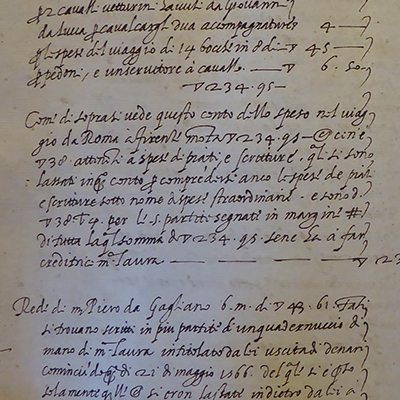 p 2 cavalli vetturin hauuti da Giovann
da Luca p cavalcarsi dua accompagnature 4 —
p le spese del viaggio di 14 bocche in 8 di ▽ 45 —
p pedoni, e un servitore à cavallo — ▽ 6. 50
— ▽ 234.95 —
Come di sopra si vede questo conto dello speso nel viag
gio da Roma a firenze monta ▽ 234.95 —
▽ 38 attenenti à spese di piati, e scritture, si sono
lassati in conto p comprendersi anco le spese de piati
e scritture sotto nome à spese straordinarie — e sono d.
▽ 38 ▽ 4. per le s. partite segnate in margine #
di tutta la somma de ▽ 234.95. se ne ha à far
creditrice m.ª laura — ▽ 23
Rede di m Piero da Gagliano b.m. di ▽ 43. 61.
si trovano scritti in piu partite d un quadernuccio di
mano di m.ª laura intitolato da lei uscita di denari
cominciò di 21 di maggio 1566 del
solamente si eron lassate indietro da lei à